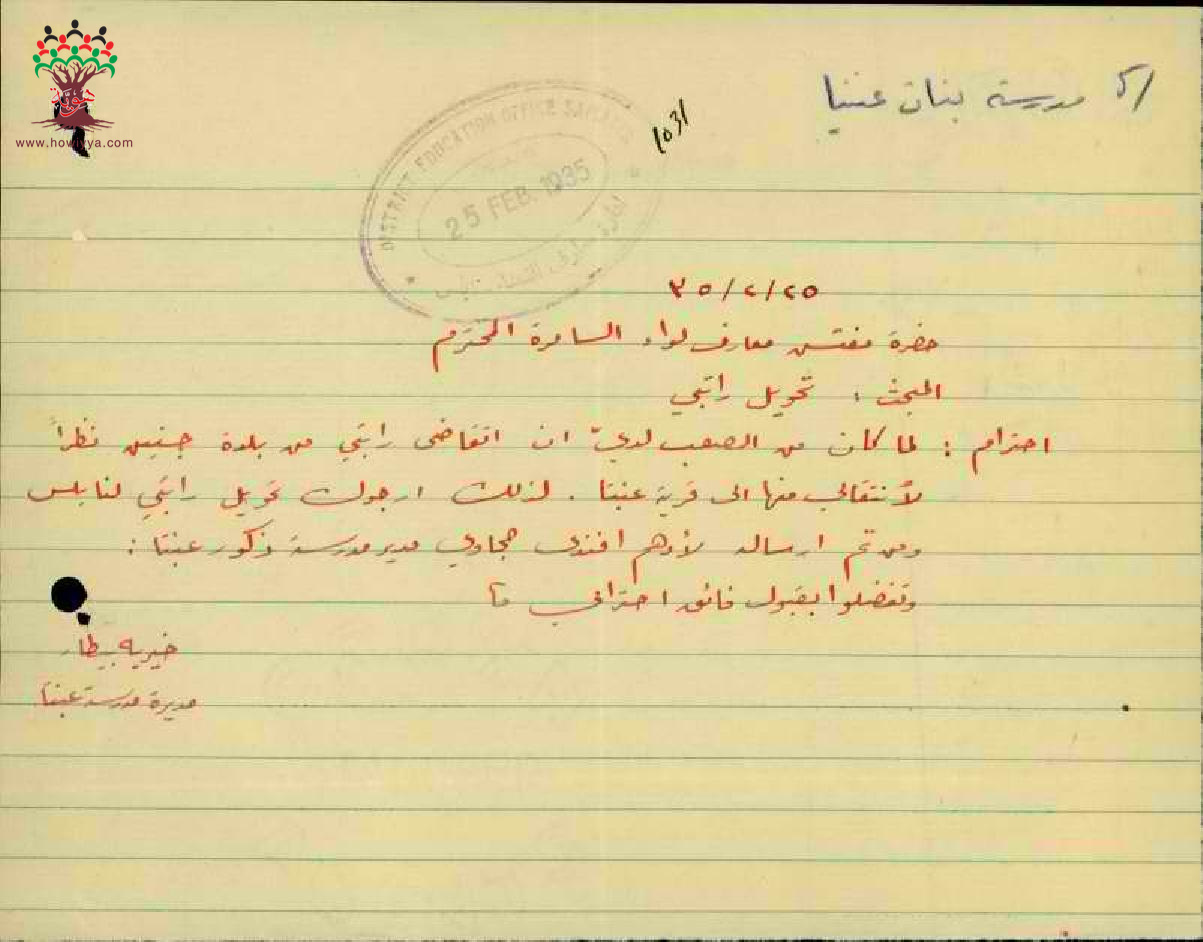 مدرسة بنات عنبتا
1031
DISTRICT EDUCATION OFFICE
25 FEB. 1935
www.howiyya.com
٢٥/٢/٣٥
حضرة مفتش معارف لواء السامرة المحترم
المبحث : تحويل راتبي
احترام : لما كان من الصعب لديّ ان اتقاضى راتبي من بلدة جنين نظراً
لأنتقالي منها الى قرية عنبتا . لذلك ارجوك تحويل راتبي لنابلس
ومن ثم ارساله لأدهم افندي حجاوي مدير مدرسة ذكور عنبتا :
وتفضلوا بقبول فائق احترامي
خيريه بيطار
مديرة مدرسة عنبتا